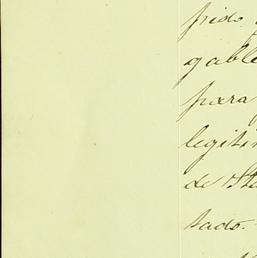 pido
gable
para
legitim
de Sta
tado.